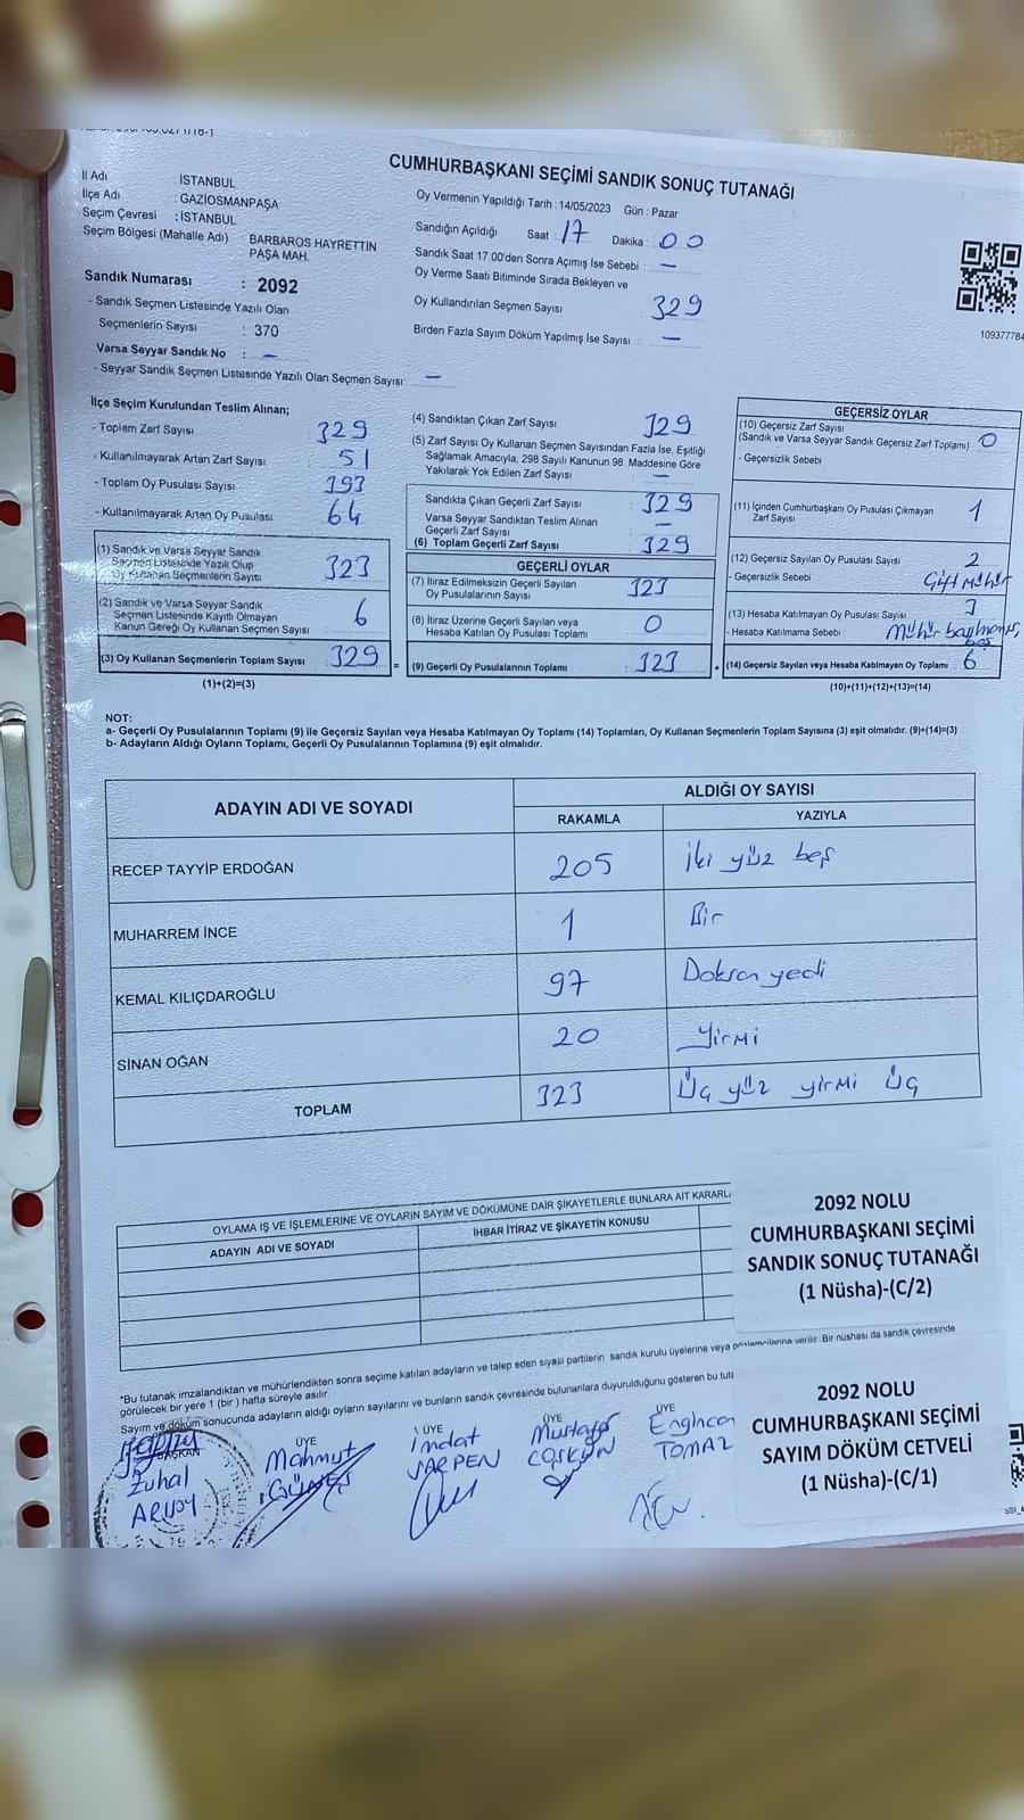 CUMHURBAŞKANI SEÇİMİ SANDIK SONUÇ TUTANAĞI
İl Adı : İSTANBUL
İlçe Adı : GAZİOSMANPAŞA
Seçim Çevresi : İSTANBUL
Seçim Bölgesi (Mahalle Adı) BARBAROS HAYRETTİN
PAŞA MAH.
Sandık Numarası : 2092
- Sandık Seçmen Listesinde Yazılı Olan
Seçmenlerin Sayısı : 370
Varsa Seyyar Sandık No : –
- Seyyar Sandık Seçmen Listesinde Yazılı Olan Seçmen Sayısı: –
Oy Vermenin Yapıldığı Tarih : 14/05/2023 Gün : Pazar
Sandığın Açıldığı Saat : 17 Dakika : 00
Sandık Saat 17.00'den Sonra Açımış İse Sebebi : –
Oy Verme Saati Bitiminde Sırada Bekleyen ve
Oy Kullandırılan Seçmen Sayısı 329
Birden Fazla Sayım Döküm Yapılmış İse Sayısı : –
109377784
İlçe Seçim Kurulundan Teslim Alınan;
- Toplam Zarf Sayısı 329
- Kullanılmayarak Artan Zarf Sayısı 51
- Toplam Oy Pusulası Sayısı 393
- Kullanılmayarak Artan Oy Pusulası 64
(1) Sandık ve Varsa Seyyar Sandık
Seçmen Listesinde Yazılı Olup
Oy Kullanan Seçmenlerin Sayısı 323
(2) Sandık ve Varsa Seyyar Sandık
Seçmen Listesinde Kayıtlı Olmayan
Kanun Gereği Oy Kullanan Seçmen Sayısı 6
(3) Oy Kullanan Seçmenlerin Toplam Sayısı 329 =
(1)+(2)=(3)
(4) Sandıktan Çıkan Zarf Sayısı 329
(5) Zarf Sayısı Oy Kullanan Seçmen Sayısından Fazla İse, Eşitliği
Sağlamak Amacıyla, 298 Sayılı Kanunun 98. Maddesine Göre
Yakılarak Yok Edilen Zarf Sayısı –
Sandıkta Çıkan Geçerli Zarf Sayısı 329
Varsa Seyyar Sandıktan Teslim Alınan
Geçerli Zarf Sayısı –
(6) Toplam Geçerli Zarf Sayısı 329
GEÇERLİ OYLAR
(7) İtiraz Edilmeksizin Geçerli Sayılan
Oy Pusulalarının Sayısı 323
(8) İtiraz Üzerine Geçerli Sayılan veya
Hesaba Katılan Oy Pusulası Toplamı 0
(9) Geçerli Oy Pusulalarının Toplamı : 323 +
GEÇERSİZ OYLAR
(10) Geçersiz Zarf Sayısı
(Sandık ve Varsa Seyyar Sandık Geçersiz Zarf Toplamı) 0
- Geçersizlik Sebebi
(11) İçinden Cumhurbaşkanı Oy Pusulası Çıkmayan
Zarf Sayısı 1
(12) Geçersiz Sayılan Oy Pusulası Sayısı 2
- Geçersizlik Sebebi Çift mühür
(13) Hesaba Katılmayan Oy Pusulası Sayısı 3
- Hesaba Katılmama Sebebi mühür basılmamış,
boş
(14) Geçersiz Sayılan veya Hesaba Katılmayan Oy Toplamı 6
(10)+(11)+(12)+(13)=(14)
NOT:
a- Geçerli Oy Pusulalarının Toplamı (9) ile Geçersiz Sayılan veya Hesaba Katılmayan Oy Toplamı (14) Toplamları, Oy Kullanan Seçmenlerin Toplam Sayısına (3) eşit olmalıdır. (9)+(14)=(3)
b- Adayların Aldığı Oyların Toplamı, Geçerli Oy Pusulalarının Toplamına (9) eşit olmalıdır.
ADAYIN ADI VE SOYADI ALDIĞI OY SAYISI
RAKAMLA YAZIYLA
RECEP TAYYİP ERDOĞAN 205 İki yüz beş
MUHARREM İNCE 1 Bir
KEMAL KILIÇDAROĞLU 97 Doksan yedi
SİNAN OĞAN 20 Yirmi
TOPLAM 323 Üç yüz yirmi üç
OYLAMA İŞ VE İŞLEMLERİNE VE OYLARIN SAYIM VE DÖKÜMÜNE DAİR ŞİKAYETLERLE BUNLARA AİT KARARL
ADAYIN ADI VE SOYADI İHBAR İTİRAZ VE ŞİKAYETİN KONUSU
2092 NOLU
CUMHURBAŞKANI SEÇİMİ
SANDIK SONUÇ TUTANAĞI
(1 Nüsha)-(C/2)
*Bu tutanak imzalandıktan ve mühürlendikten sonra seçime katılan adayların ve talep eden siyasi partilerin sandık kurulu üyelerine veya müşahitlerine verilir. Bir nüshası da sandık çevresinde
görülecek bir yere 1 (bir) hafta süreyle asılır.
Sayım ve döküm sonucunda adayların aldığı oyların sayılarını ve bunların sandık çevresinde bulunanlara duyurulduğunu gösteren bu tuta
2092 NOLU
CUMHURBAŞKANI SEÇİMİ
SAYIM DÖKÜM CETVELİ
(1 Nüsha)-(C/1)
BAŞKAN ÜYE ÜYE ÜYE ÜYE
Zuhal Mahmut İmdat Mustafa Engincan
ARSOY GÜNEŞ SARPEN COŞKUN TOMAZ